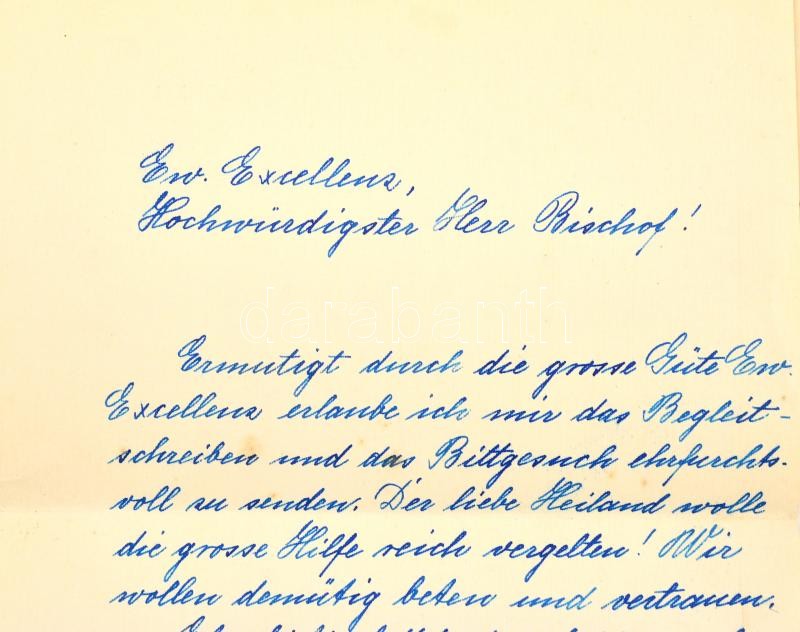 Ew. Excellenz,
Hochwürdigster Herr Bischof!
darabanth
Ermutigt durch die grosse Güte Ew.
Excellenz erlaube ich mir das Begleit-
schreiben und das Bittgesuch ehrfurchts-
voll zu senden. Der liebe Heiland wolle
die grosse Hilfe reich vergelten! Wir
wollen demütig beten und vertrauen.